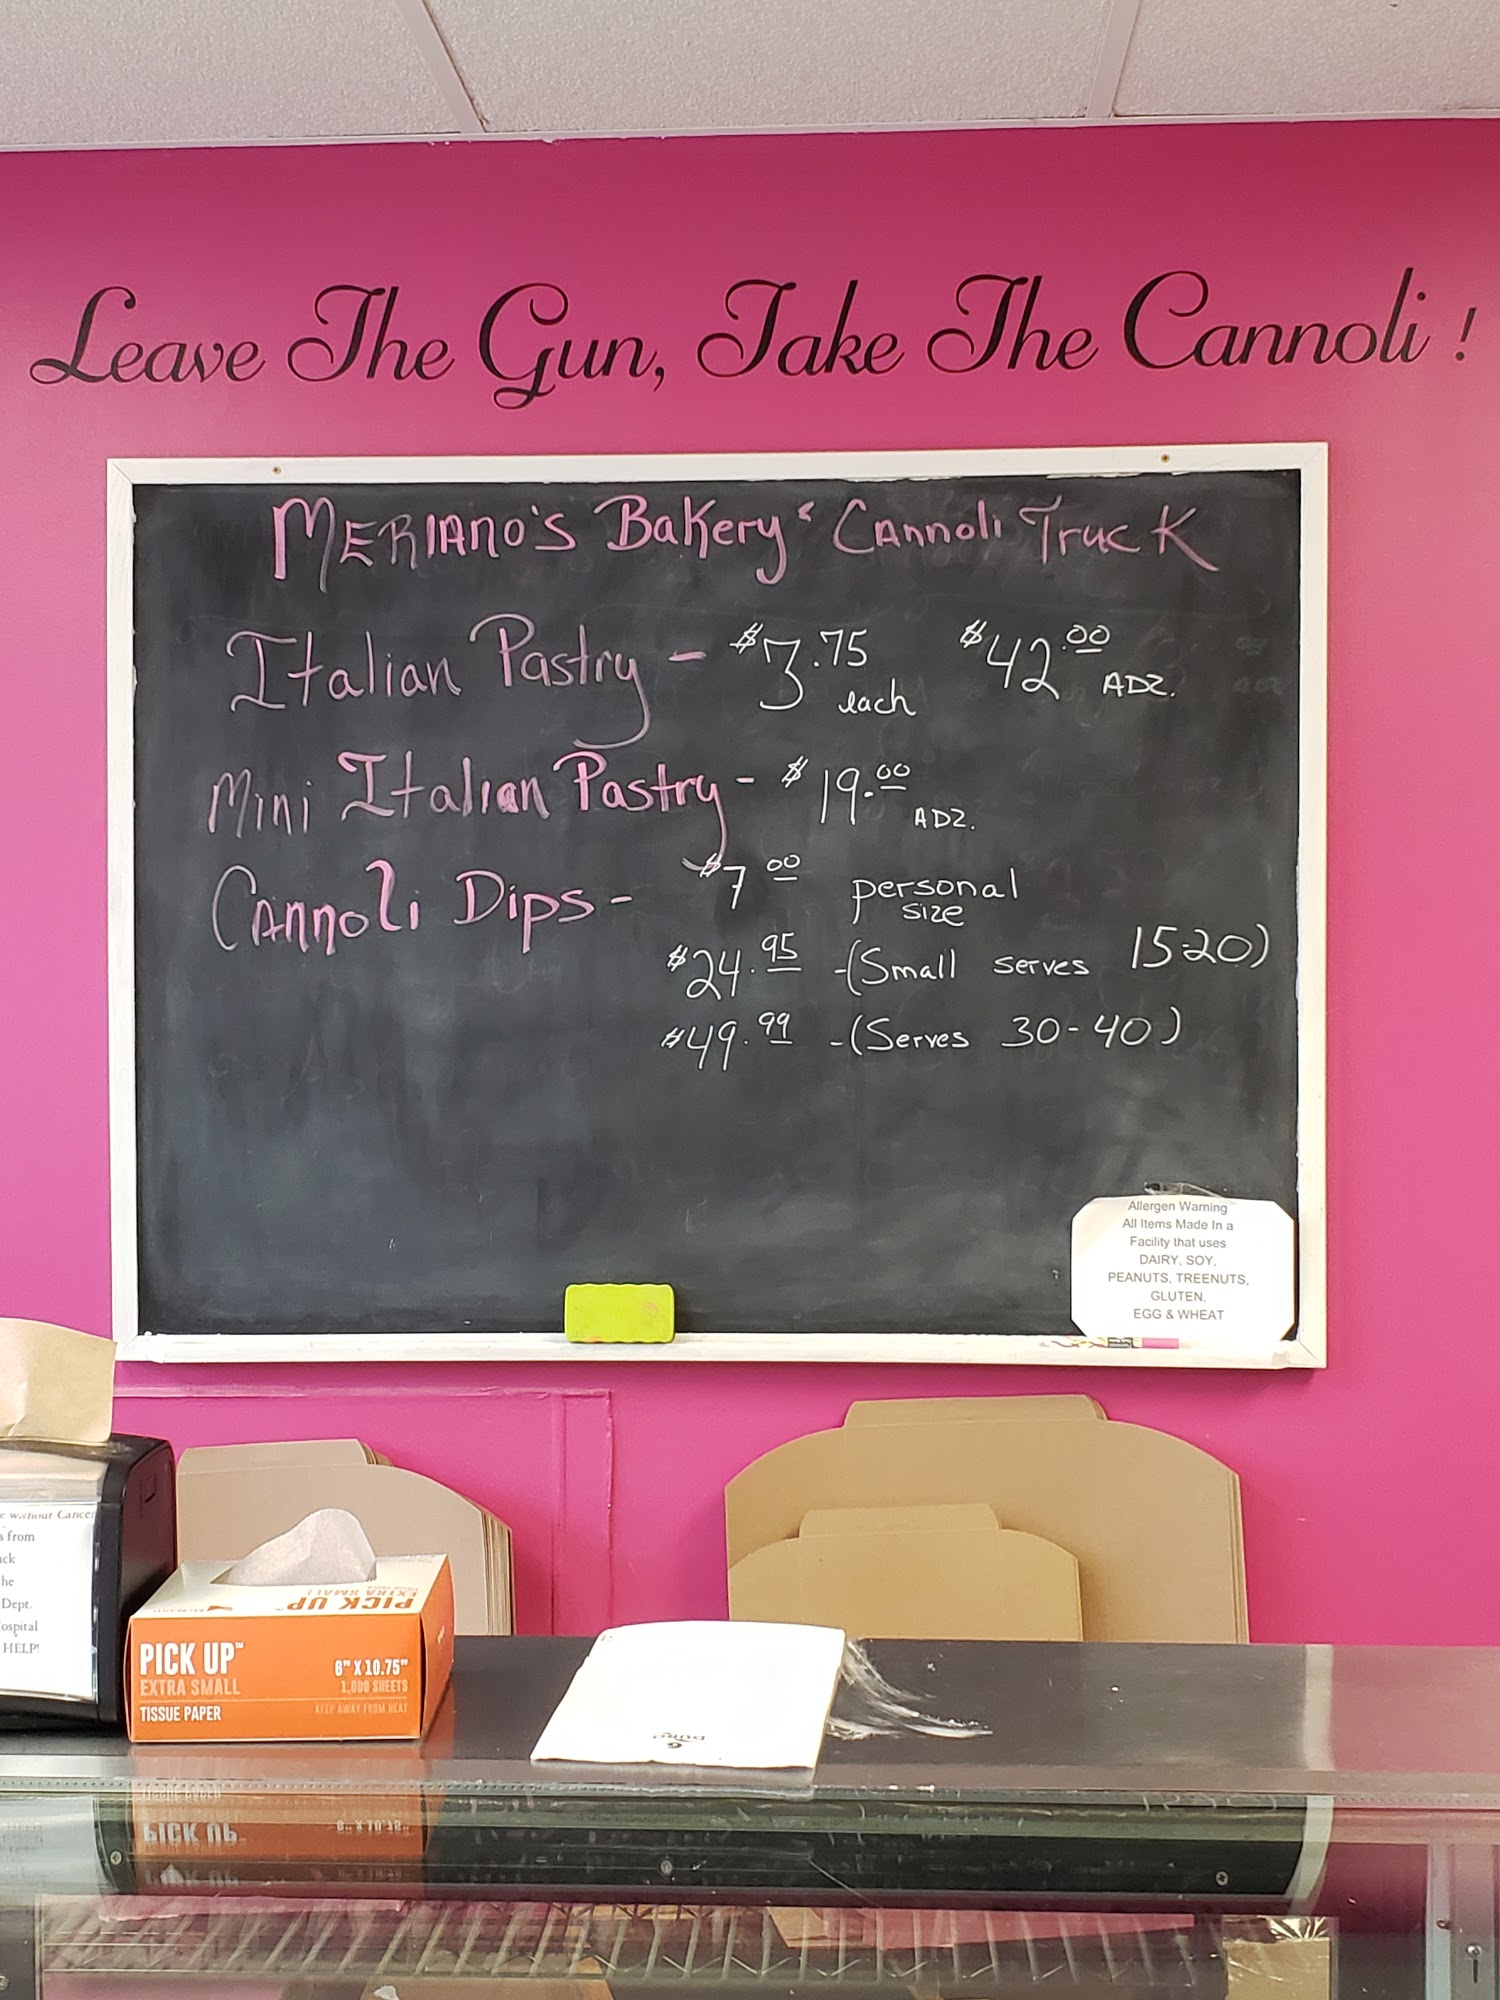 Leave The Gun, Take The Cannoli !
MERIANO'S BaKery & CANNOLi TrucK
Italian Pastry - $3.75 each $42.00 A DZ.
Mini Italian Pastry - $19.00 A DZ.
CANNOLi Dips - $7 00 personal size
$24.95 -(Small serves 15-20)
$49.99 -(Serves 30-40)
Allergen Warning
All Items Made In a
Facility that uses
DAIRY, SOY,
PEANUTS, TREENUTS,
GLUTEN,
EGG & WHEAT
e without Cancer
s from
ck
he
Dept.
ospital
HELP!
PICK UP
EXTRA SMALL
PICK UP™
EXTRA SMALL
TISSUE PAPER
6" X 10.75"
1,000 SHEETS
KEEP AWAY FROM HEAT
6
DURO